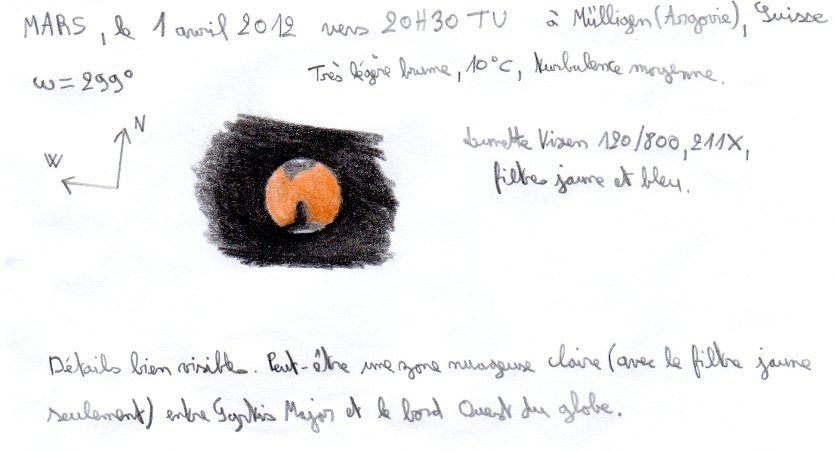 MARS, le 1 avril 2012 vers 20H30 TU à Mülligen (Argovie), Suisse
ω = 299°
Très légère brume, 10°C, turbulence moyenne.
N
W
Lunette Vixen 120/800, 211X,
filtres jaune et bleu.
Détails bien visible. Peut-être une zone nuageuse claire (avec le filtre jaune
seulement) entre Syrtis Major et le bord Ouest du globe.